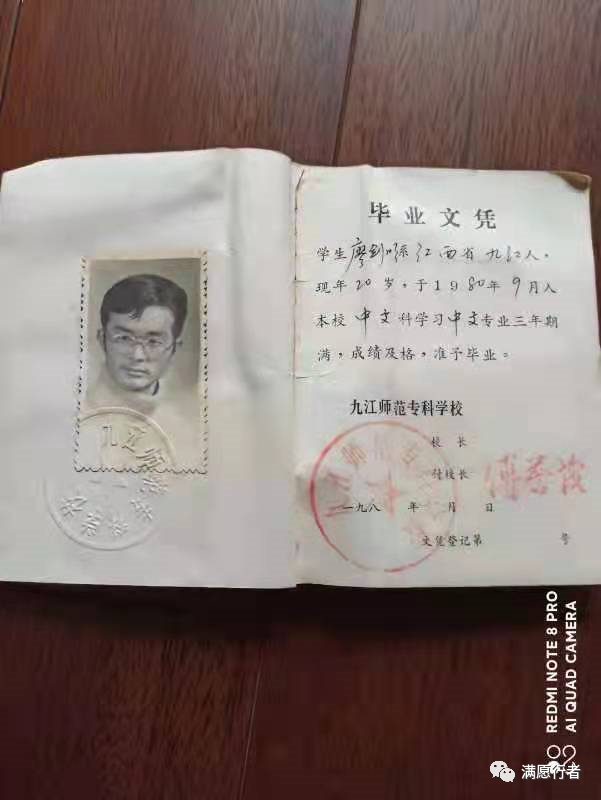 毕业文凭
学生廖 江西省九江人,
现年20岁,于1980年9月入
本校中文科学习中文专业三年期
满,成绩及格,准予毕业。
九江师范专科学校
校长
付校长
一九八 年 月 日
文凭登记第 号
九江师范专科学校
REDMI NOTE 8 PRO
AI QUAD CAMERA
满愿行者